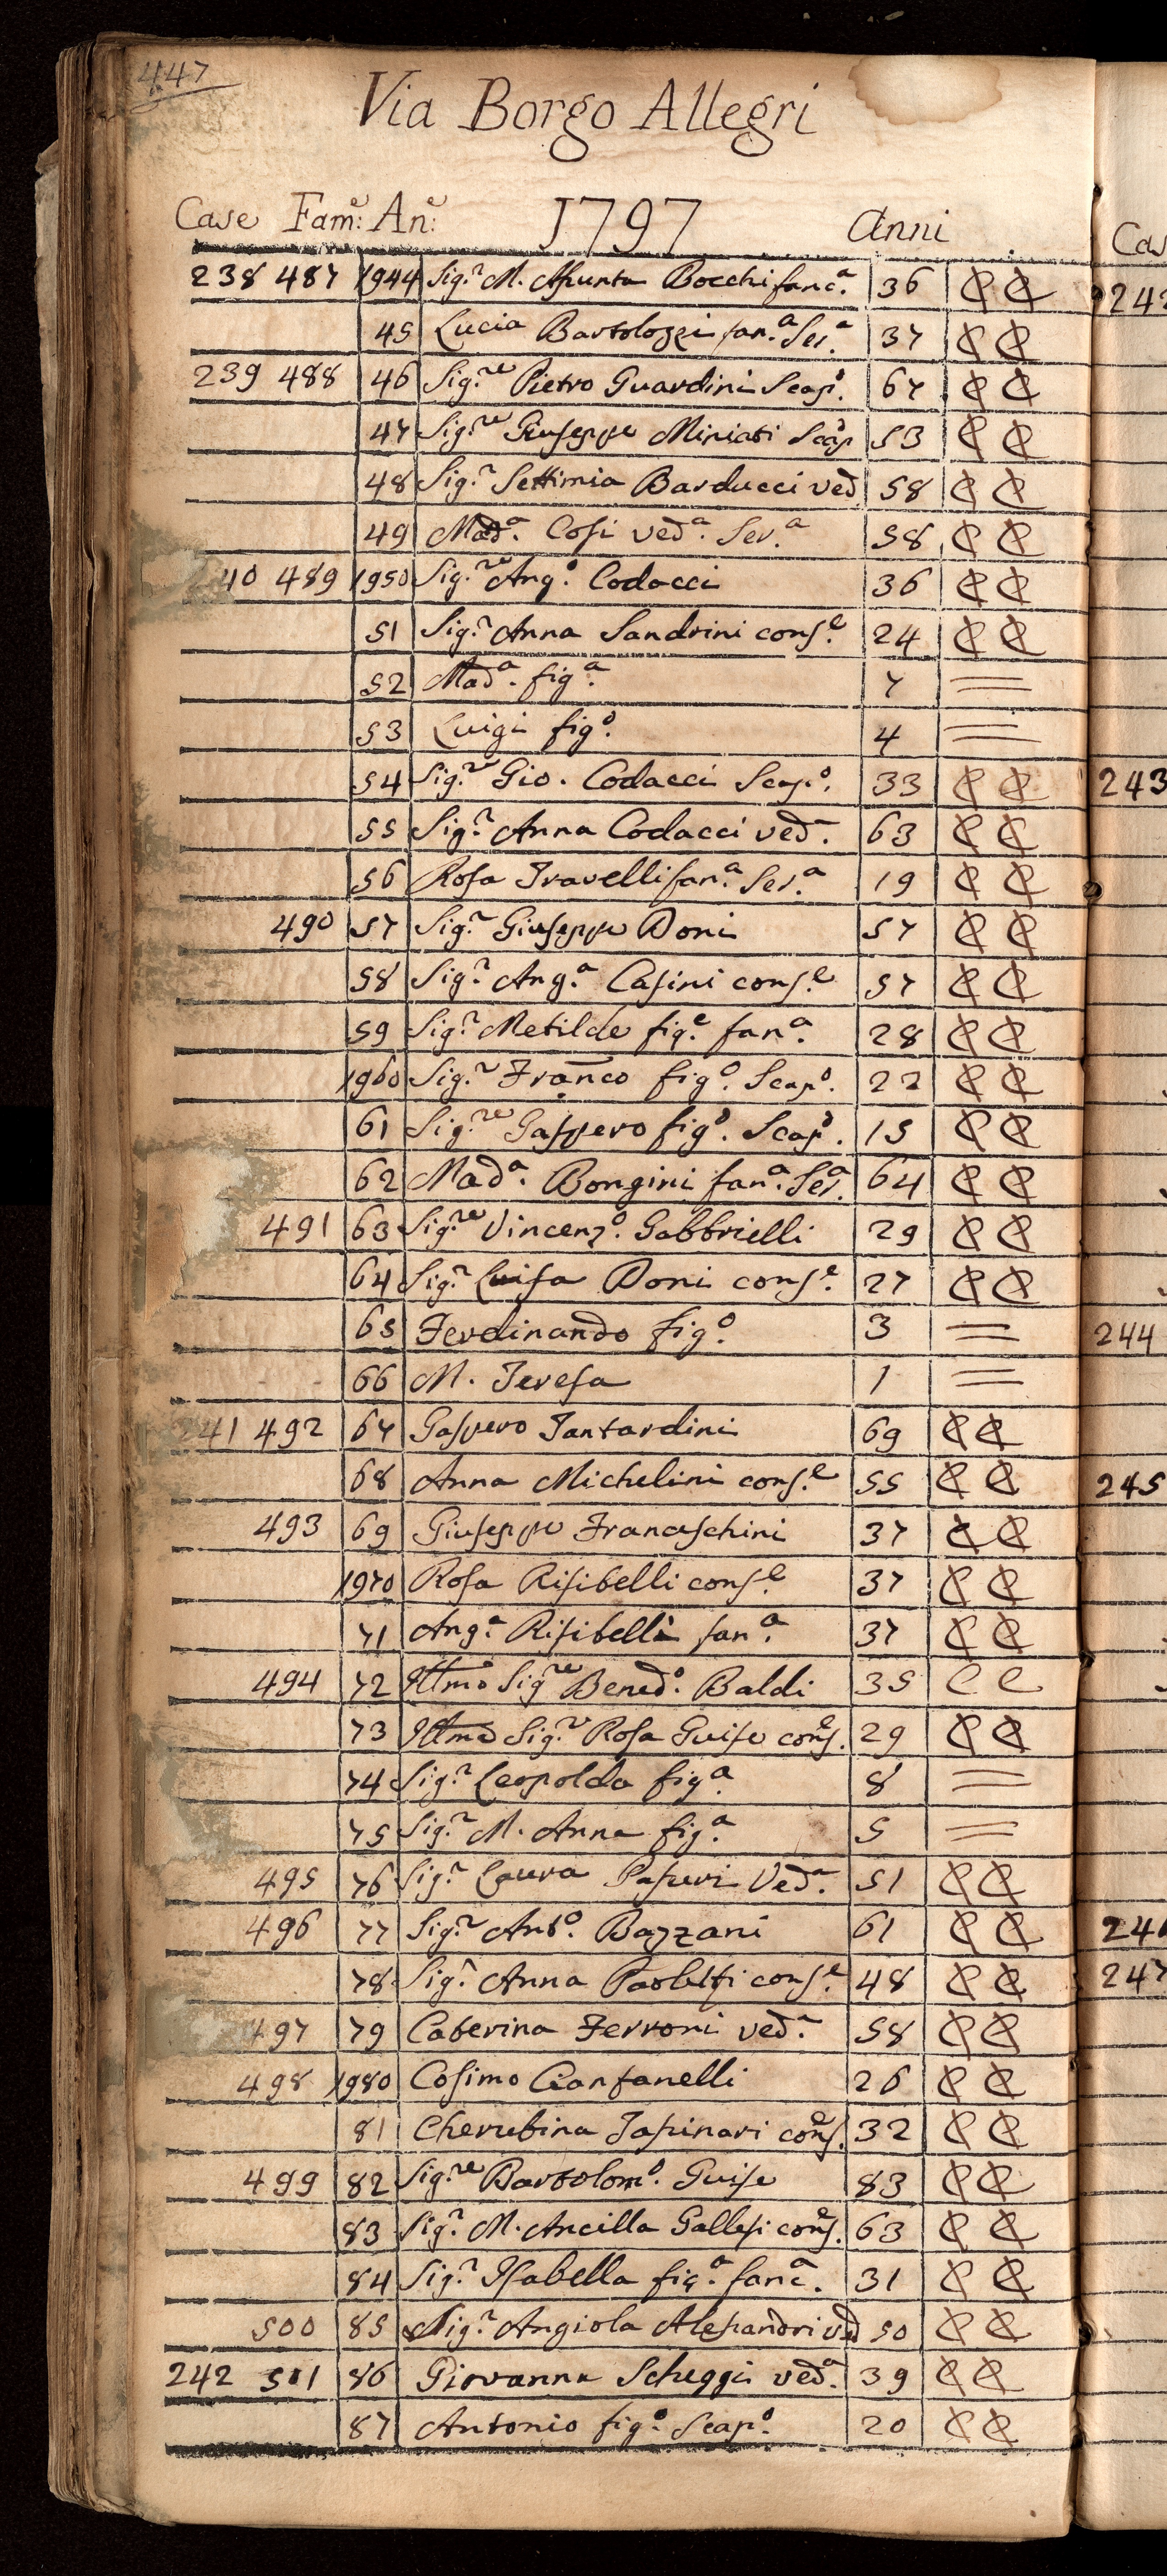 447
Via Borgo Allegri
Case Fam: An: 1797 Anni
238 487 1944 Sig.ª M. Assunta Bocchi fanc.ª 36 C C
45 Lucia Bartolozzi fan.ª Ser.ª 37 C C
239 488 46 Sig.re Pietro Guardini Scap.º 67 C C
47 Sig.re Giuseppe Miniati Scap 53 C C
48 Sig.ª Settimia Barducci ved 58 C C
49 Mad.ª Cosi ved.ª Ser.ª 58 C C
240 489 1950 Sig.re Ang.º Codacci 36 C C
51 Sig.ª Anna Sandrini cons.e 24 C C
52 Mad.ª fig.ª 7 =
53 Luigi fig.º 4 =
54 Sig.re Gio. Codacci Scap.º 33 C C
55 Sig.ª Anna Codacci ved.ª 63 C C
56 Rosa Travelli fan.ª Ser.ª 19 C C
490 57 Sig.r Giuseppe Doni 57 C C
58 Sig.ª Ang.ª Casini cons.e 57 C C
59 Sig.ª Metilde fig.ª fan.ª 28 C C
1960 Sig.r Franco fig.º Scap.º 22 C C
61 Sig.re Gaspero fig.º Scap.º 15 C C
62 Mad.ª Bongini fan.ª Ser.ª 64 C C
491 63 Sig.re Vincenz.º Gabbrielli 29 C C
64 Sig.ª Luisa Doni cons.e 27 C C
65 Ferdinando fig.º 3 =
66 M. Teresa 1 =
241 492 67 Gaspero Tantardini 69 C C
68 Anna Michelini cons.e 55 C C
493 69 Giuseppe Francaschini 37 C C
1970 Rosa Risibelli cons.e 37 C C
71 Ang.ª Risibelli fan.ª 37 C C
494 72 Illmo Sig.re Bened.º Baldi 35 C C
73 Illma Sig.ª Rosa Guise cons.e 29 C C
74 Sig.ª Leopolda fig.ª 8 =
75 Sig.ª M. Anna fig.ª 5 =
495 76 Sig.ª Laura Ved.ª 51 C C
496 77 Sig.r Ant.º Bazzani 61 C C
78 Sig.ª Anna cons.e 48 C C
497 79 Caterina Ferroni ved.ª 58 C C
498 1980 Cosimo Cianfanelli 26 C C
81 Cherubina Tapinari cons.e 32 C C
499 82 Sig.re Bartolom.º Guise 83 C C
83 Sig.ª M. Ancilla Gallesi cons.e 63 C C
84 Sig.ª Isabella fig.ª fanc.ª 31 C C
500 85 Sig.ª Angiola Alessandri ved 50 C C
242 501 86 Giovanna Scheggi ved.ª 39 C C
87 Antonio fig.º Scap.º 20 C C
Cas
243
244
245
247